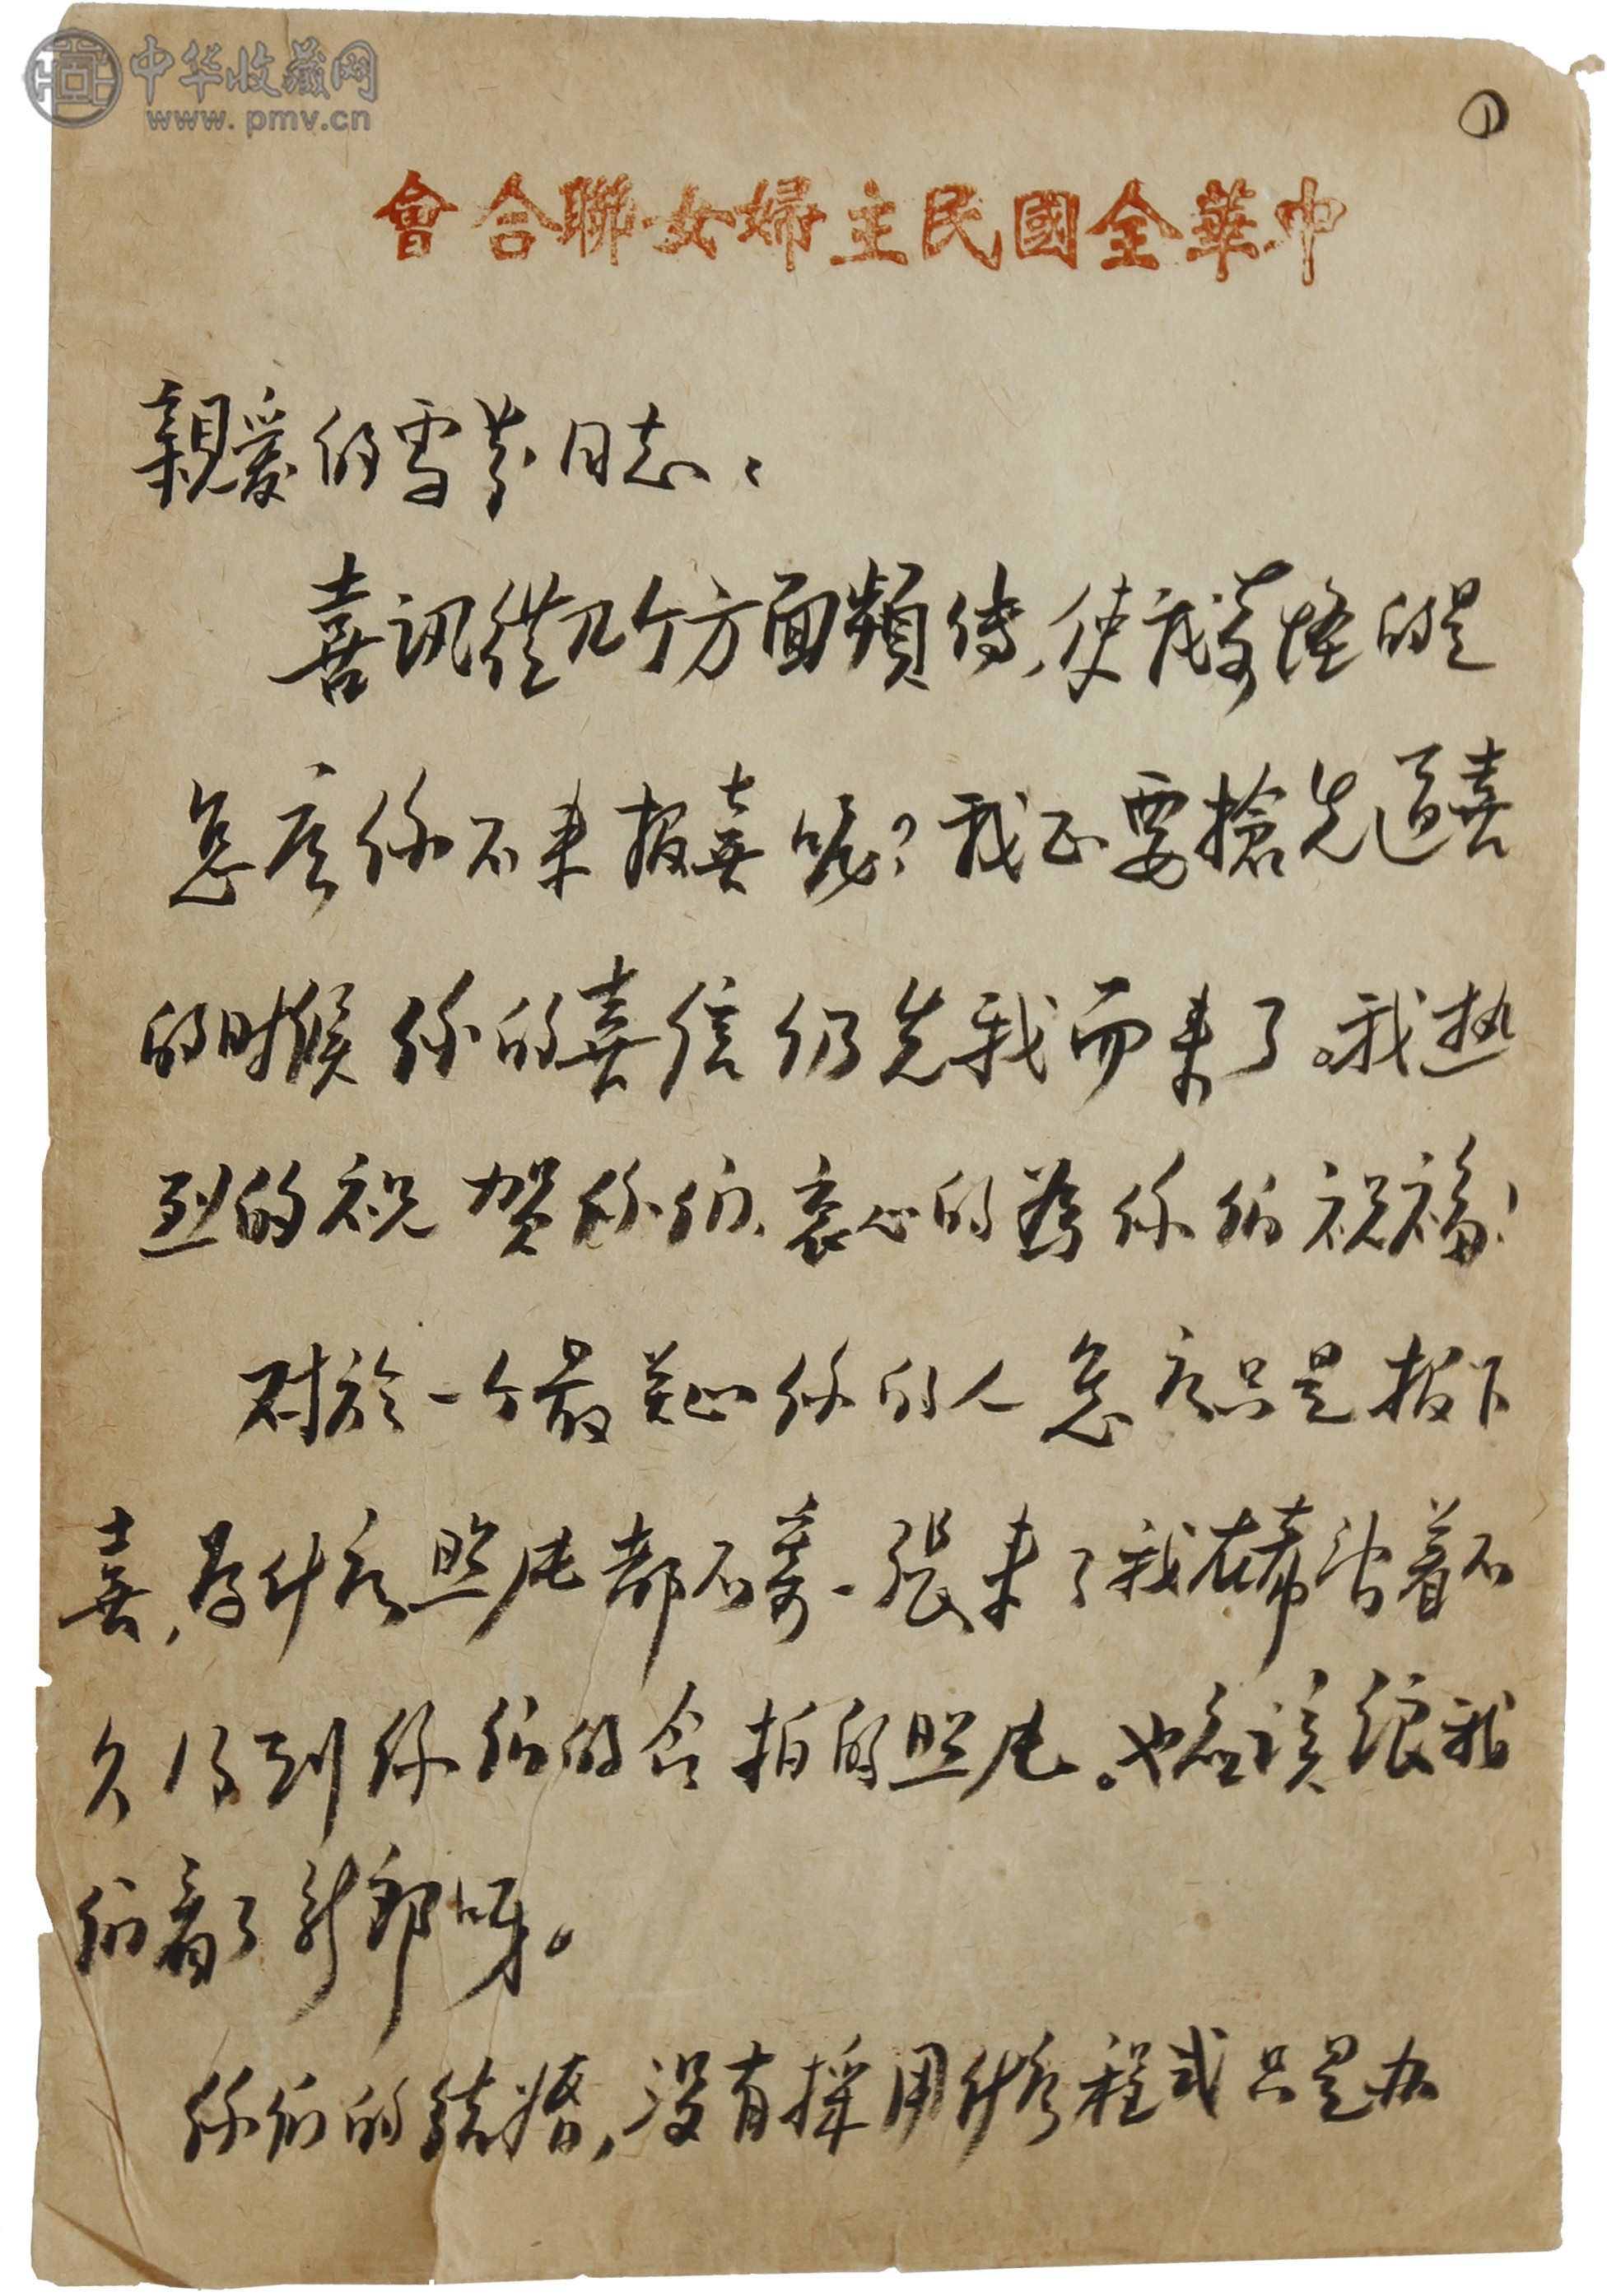 中华收藏网
www.pmv.cn
①
會合聯女婦主民國全華中
親爱的雪芬同志：
喜讯從几个方面頻傳、使我奇怪的是
怎么你不来报喜呢？我正要搶先道喜
的时候你的喜信仍先我而来了。我热
烈的祝贺你们、衷心的為你们祝福！
对於一个最关心你的人怎么只是报下
喜，為什么照片都不寄一張来了我在希望着不
久得到你们的合拍的照片。也应該让我
们看了新郎呀。
你们的結婚，没有採用什么程式只是办